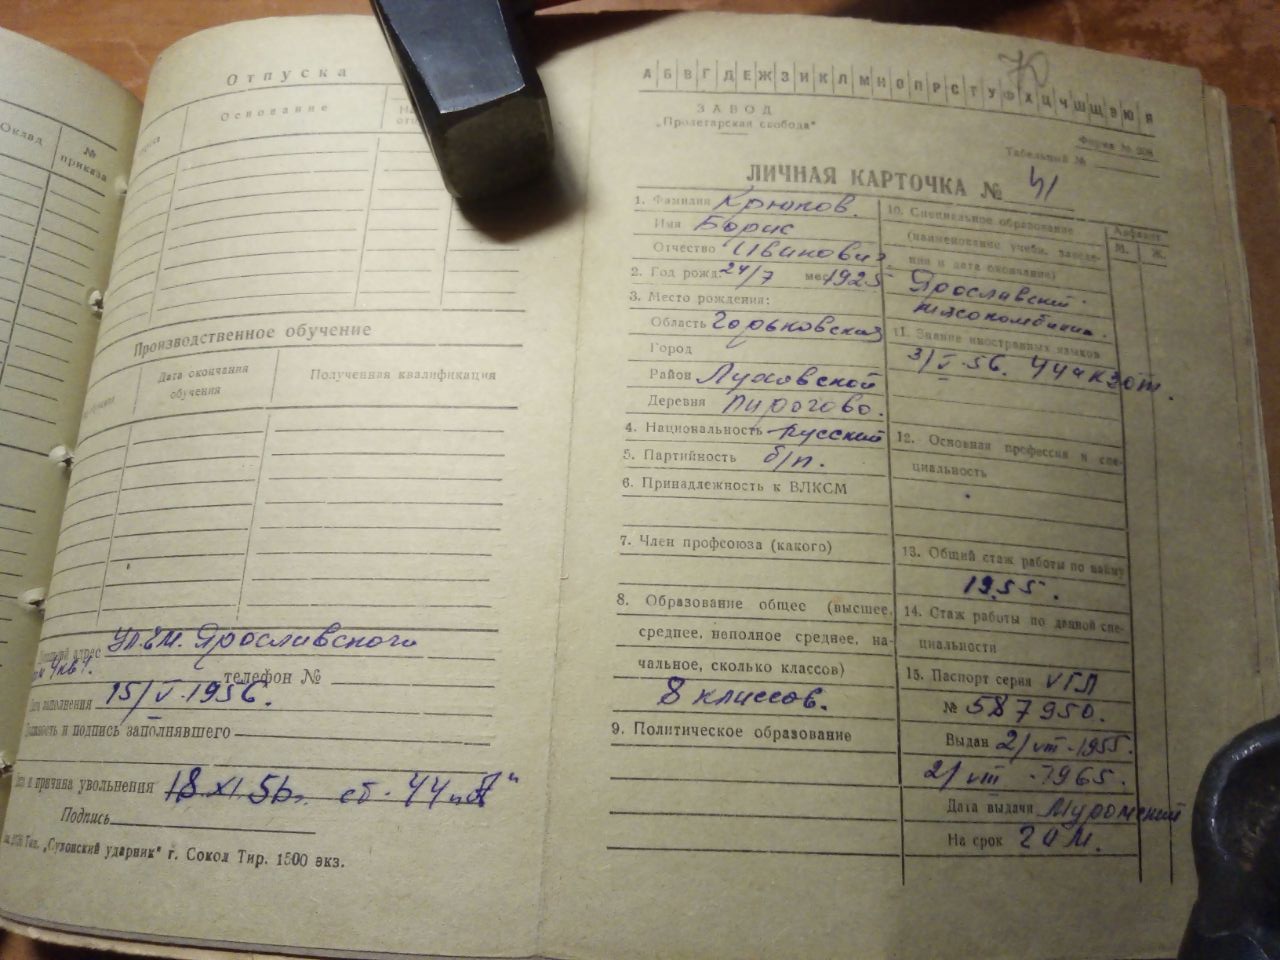 Оклад
№ приказа
Отпуска
Основание
Производственное обучение
Дата окончания обучения
Полученная квалификация
адрес Ул. Ем. Ярославского
4 кв 4.
телефон №
заполнения 15/V-1956.
и подпись заполнявшего
и причина увольнения 18 XI 56г. ст. 44 п. "А"
Подпись
Тип. „Сухонский ударник" г. Сокол Тир. 1500 экз.
А Б В Г Д Е Ж З И К Л М Н О П Р С Т У Ф Х Ц Ч Ш Щ Э Ю Я
ЗАВОД
„Пролетарская свобода"
Форма №
Табельный №
ЛИЧНАЯ КАРТОЧКА № 41
1. Фамилия Крюков.
Имя Борис
Отчество Иванович
2. Год рожд. 24/7 мес. 1925
3. Место рождения:
Область Горьковская
Город
Район
Деревня Пирогово.
4. Национальность русский
5. Партийность б/п.
6. Принадлежность к ВЛКСМ
7. Член профсоюза (какого)
8. Образование общее (высшее,
среднее, неполное среднее, на-
чальное, сколько классов)
8 классов.
9. Политическое образование
10. Специальное образование
(наименование учебн. заведе-
ния и дата окончания)
Ярославский
мясокомбинат.
11. Знание иностранных языков
3/V-56.
12. Основная профессия и спе-
циальность
13. Общий стаж работы по найму
1955.
14. Стаж работы по данной спе-
циальности
15. Паспорт серия
№ 587950.
Выдан 2/VIII-1955.
2/VIII-1965.
Дата выдачи Муромский
На срок ГОМ.
Алфавит
М. Ж.